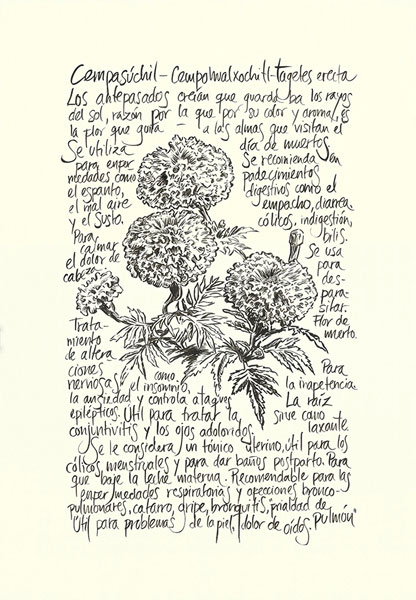 Cempasúchil - Cempohualxochitl - Tagetes erecta
Los antepasados creían que guardaba los rayos
del sol, razón por la que por su color y aroma, es
la flor que guía - a las almas que visitan el
día de muertos
Se utiliza
para enfer
medades como
el espanto,
el mal aire
y el susto.
Para
calmar
el dolor de
cabeza
Se recomienda en
padecimientos
digestivos como el
empacho, diarrea
cólicos, indigestión,
bilis.
Se usa
para
des-
para-
sitar.
Flor de
muerto.
Trata-
miento
de altera
ciones
nerviosas como
el insomnio,
la ansiedad y controla ataques
epilépticos. Útil para tratar la
conjuntivitis y los ojos adoloridos.
Para
la inapetencia.
La raíz
sirve como
laxante.
Se le considera un tónico uterino, útil para los
cólicos menstruales y para dar baños postparto. Para
que baje la leche materna. Recomendable para las
enfermedades respiratorias y afecciones bronco-
pulmonares, catarro, gripe, bronquitis, "frialdad de
Pulmón"
Útil para problemas de la piel, dolor de oídos.